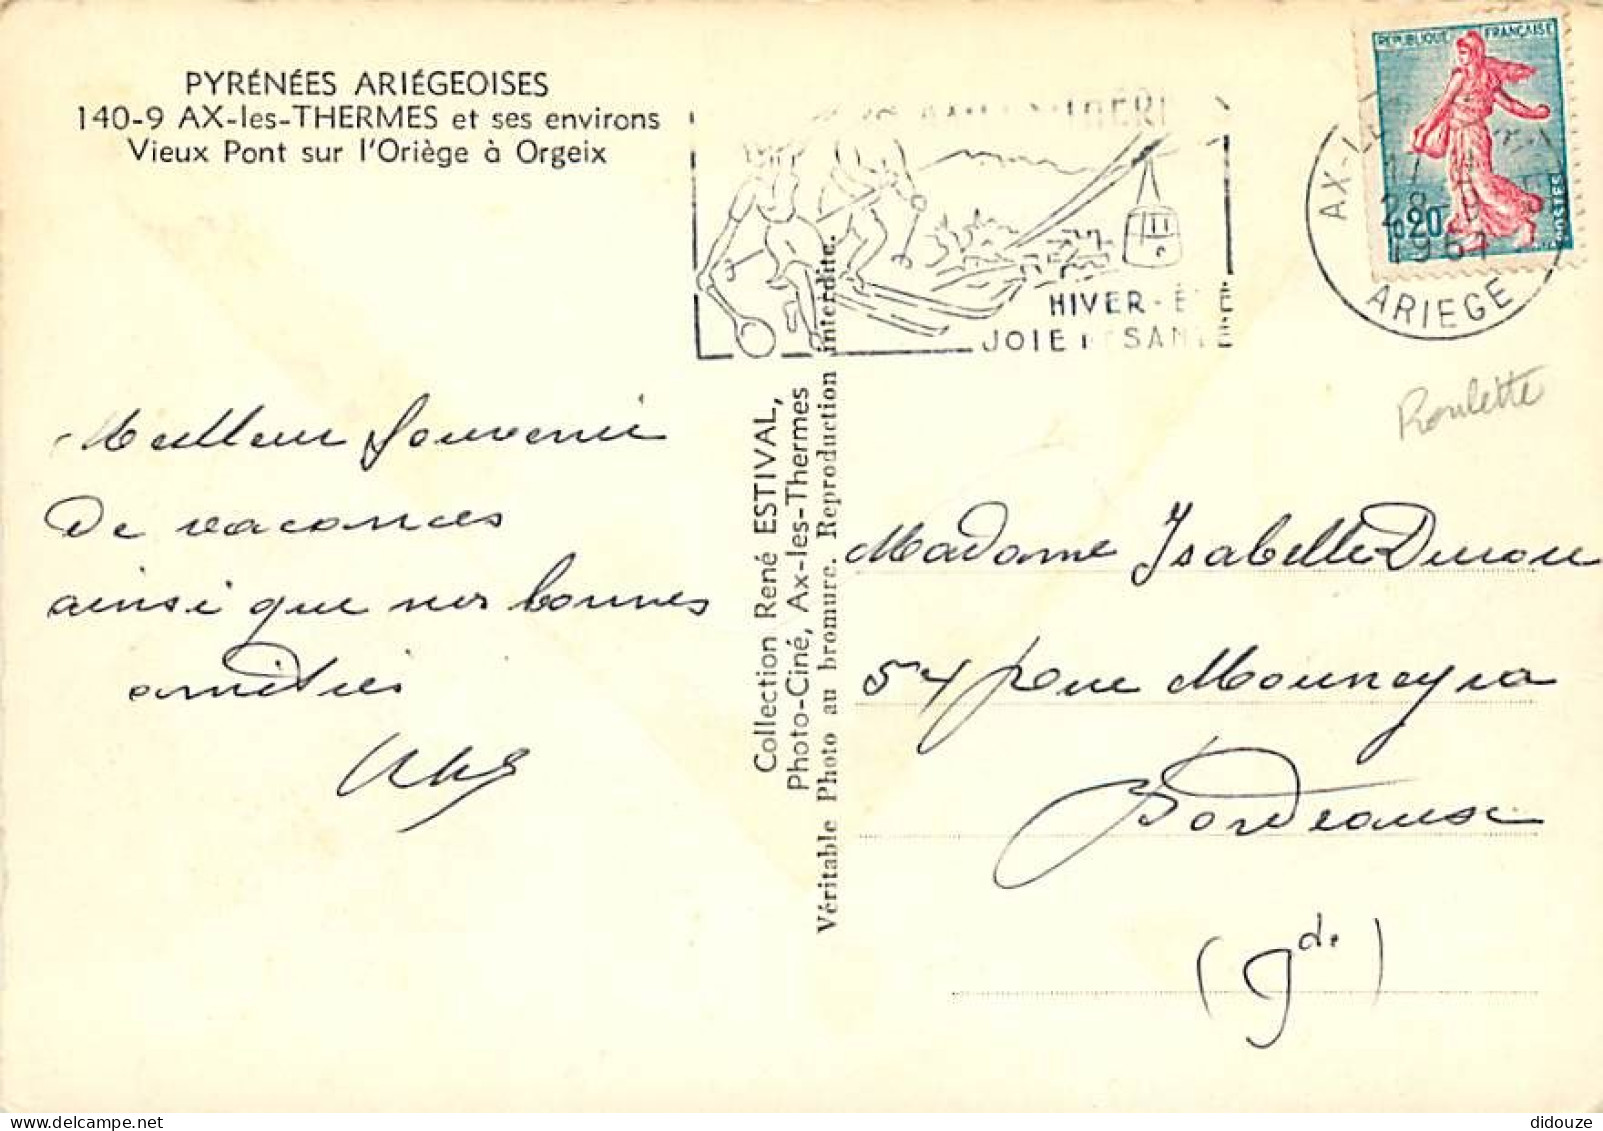 PYRÉNÉES ARIÉGEOISES
140-9 AX-les-THERMES et ses environs
Vieux Pont sur l'Oriège à Orgeix
HIVER - ÉTÉ
JOIE SANTÉ
REPUBLIQUE FRANÇAISE
0,20
POSTES
AX-LE
ARIEGE
Roulette
Meilleur Souvenir
De vacances
ainsi que nos bonnes
amitiés
Collection René ESTIVAL,
Photo-Ciné, Ax-les-Thermes
Véritable Photo au bromure. Reproduction interdite.
Madame Isabelle
54 rue Mouneyra
Bordeaux
(Gde)
didouze